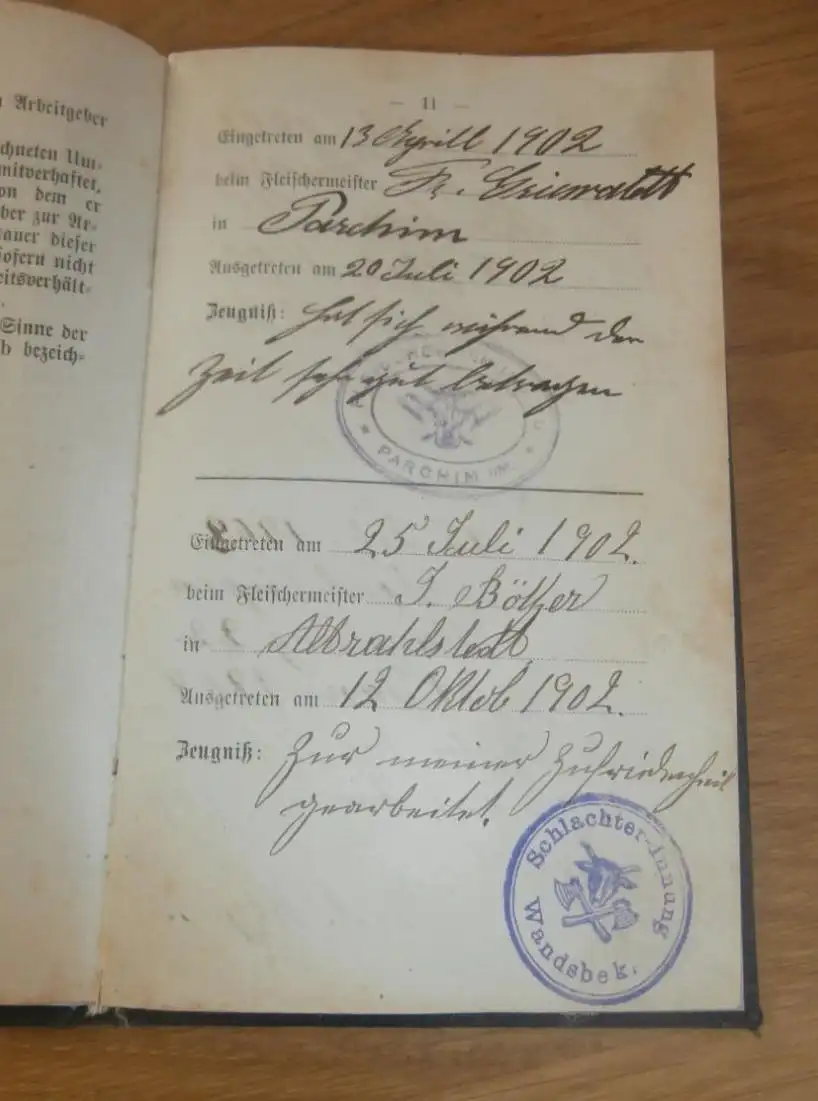 Arbeitgeber
chneten Um-
mitverhaftet,
on dem er
ber zur Ar-
auer dieser
sofern nicht
eitsverhält-
Sinne der
b bezeich-
— 11 —
Eingetreten am 13 Aprill 1902
beim Fleischermeister Fr.
in Parchim
Ausgetreten am 20 Juli 1902
Zeugniß: hat sich während der
Zeit sehr gut betragen
PARCHIM i/M
Eingetreten am 25 Juli 1902.
beim Fleischermeister J. Bölker
in Altrahlstedt
Ausgetreten am 12 Oktob 1902.
Zeugniß: Zur meiner Zufriedenheit
gearbeitet.
Schlachter-Innung
Wandsbek.